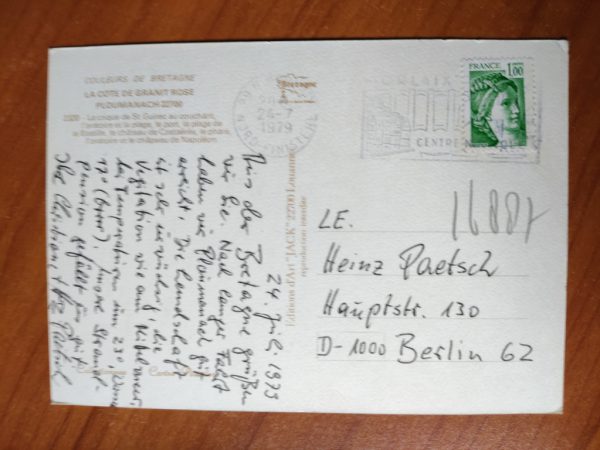 COULEURS DE BRETAGNE
LA CÔTE DE GRANIT ROSE
PLOUMANACH 22700
La crique de St Guirec au couchant,
l'oratoire et la plage, le port, la plage de
la Bastille, le château de Costaérès, le phare,
l'oratoire et le chapeau de Napoléon.
Bretagne
24-7
1979
CENTRE
FRANCE
1,00
Editions d'Art "JACK" 22700 Louannec
reproduction interdite
24. Juli 1979
Aus der Bretagne grüßen
wir Sie. Nach langer Fahrt
haben wir Ploumanach gut
erreicht. Die Landschaft
ist sehr
Vegetation wie am Mittelmeer,
die Temperaturen um 23°, Wasser
17° (brrr). Unsere Strand-
pension gefällt uns gut.
Ihre Christian, + Paetsch
16887
LE.
Heinz Paetsch
Hauptstr. 130
D-1000 Berlin 62